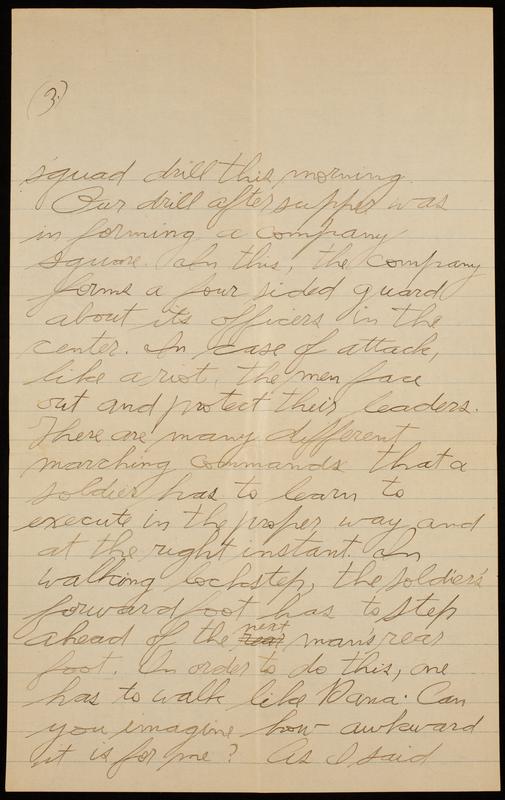 (3)
squad drill this morning.
Our drill after supper was
in forming a company
square. In this, the company
forms a four sided guard
about its officers in the
center. In case of attack,
like a riot, the men face
out and protect their leaders.
There are many different
marching commands that a
soldier has to learn to
execute in the proper way and
at the right instant. In
walking lockstep, the soldier's
forward foot has to step
next
ahead of the rear man's rear
foot. In order to do this, one
has to walk like Dana. Can
you imagine how awkward
it is for me? As I said